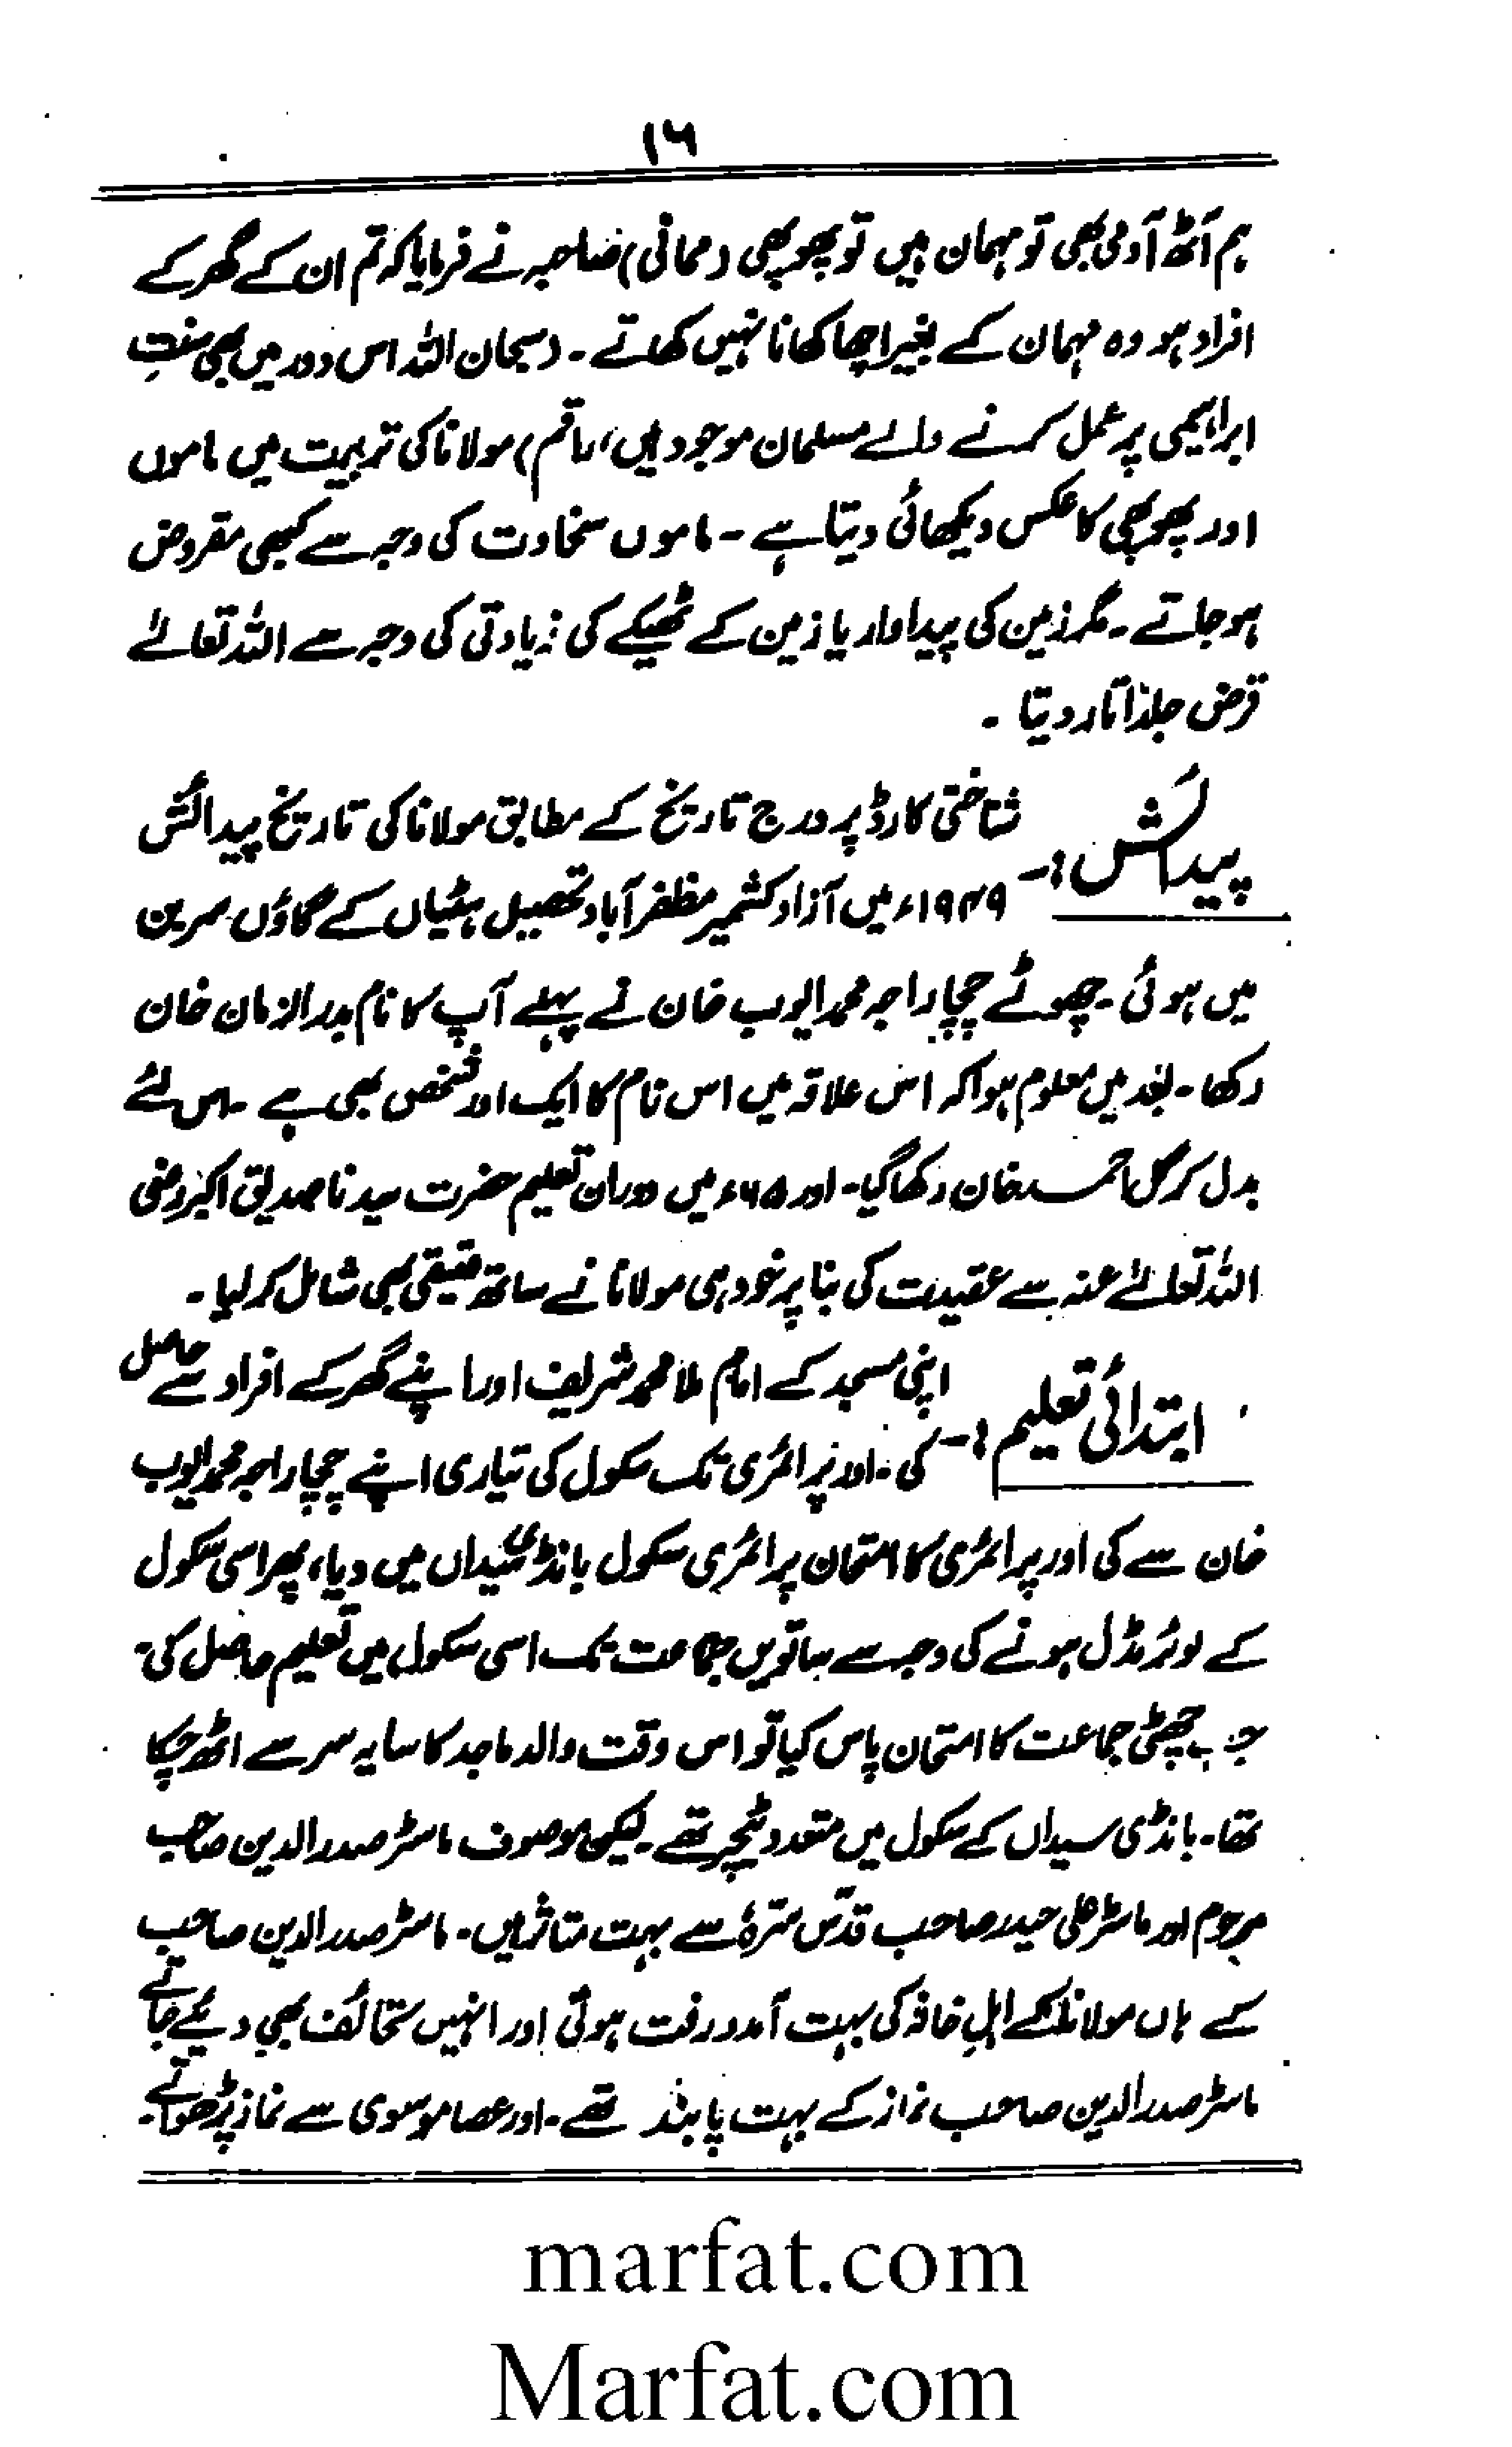 ۱۶
ہم آٹھ آدمی بھی تو مہمان ہیں تو پھوپھی (ممانی) صاحبہ نے فرمایا کہ تم ان کے گھر کے
افراد ہو وہ مہمان کے بغیر اچھا کھانا نہیں کھاتے ۔ (سبحان اللہ اس دور میں بھی سنتِ
ابراہیمی پر عمل کرنے والے مسلمان موجود ہیں، راقم) مولانا کی تربیت میں ماموں
اور پھوپھی کا عکس دیکھائی دیتا ہے ۔ ماموں سخاوت کی وجہ سے کبھی مقروض
ہو جاتے ۔ مگر زمین کی پیداوار یا زمین کے ٹھیکے کی زیادتی کی وجہ سے اللہ تعالےٰ
قرض جلد اتار دیتا ۔
پیدائش :۔ شناختی کارڈ پر درج تاریخ کے مطابق مولانا کی تاریخ پیدائش
۱۹۴۹ء میں آزاد کشمیر مظفر آباد تحصیل ہٹیاں کے گاؤں سرین
میں ہوئی ۔ چھوٹے چچا راجہ محمد ایوب خان نے پہلے آپ کا نام بدر الزمان خان
رکھا ۔ بعد میں معلوم ہوا کہ اس علاقہ میں اس نام کا ایک اور شخص بھی ہے ۔ اس لئے
بدل کر گل احمد خان رکھا گیا ۔ اور ۶۵ء میں دوران تعلیم حضرت سیدنا صدیق اکبر رضی
اللہ تعالےٰ عنہ سے عقیدت کی بنا پر خود ہی مولانا نے ساتھ عتیقی بھی شامل کر لیا ۔
ابتدائی تعلیم :۔ اپنی مسجد کے امام ملا محمد شریف اور اپنے گھر کے افراد سے حاصل
کی ۔ اور پرائمری تک سکول کی تیاری اپنے چچا راجہ محمد ایوب
خان سے کی اور پرائمری کا امتحان پرائمری سکول بانڈی سیداں میں دیا، پھر اسی سکول
کے لوئر مڈل ہونے کی وجہ سے ساتویں جماعت تک اسی سکول میں تعلیم حاصل کی ۔
جب چھٹی جماعت کا امتحان پاس کیا تو اس وقت والد ماجد کا سایہ سر سے اٹھ چکا
تھا ۔ بانڈی سیداں کے سکول میں متعدد ٹیچر تھے ۔ لیکن موصوف ماسٹر صدر الدین صاحب
مرحوم اور ماسٹر علی حیدر صاحب قدّس سرّہٗ سے بہت متاثر ہیں ۔ ماسٹر صدر الدین صاحب
کے ہاں مولانا کے اہلِ خانہ کی بہت آمد و رفت ہوتی اور انہیں تحائف بھی دیئے جاتے
ماسٹر صدر الدین صاحب نماز کے بہت پابند تھے ۔ اور عصا موسوی سے نماز پڑھواتے ۔
marfat.com
Marfat.com